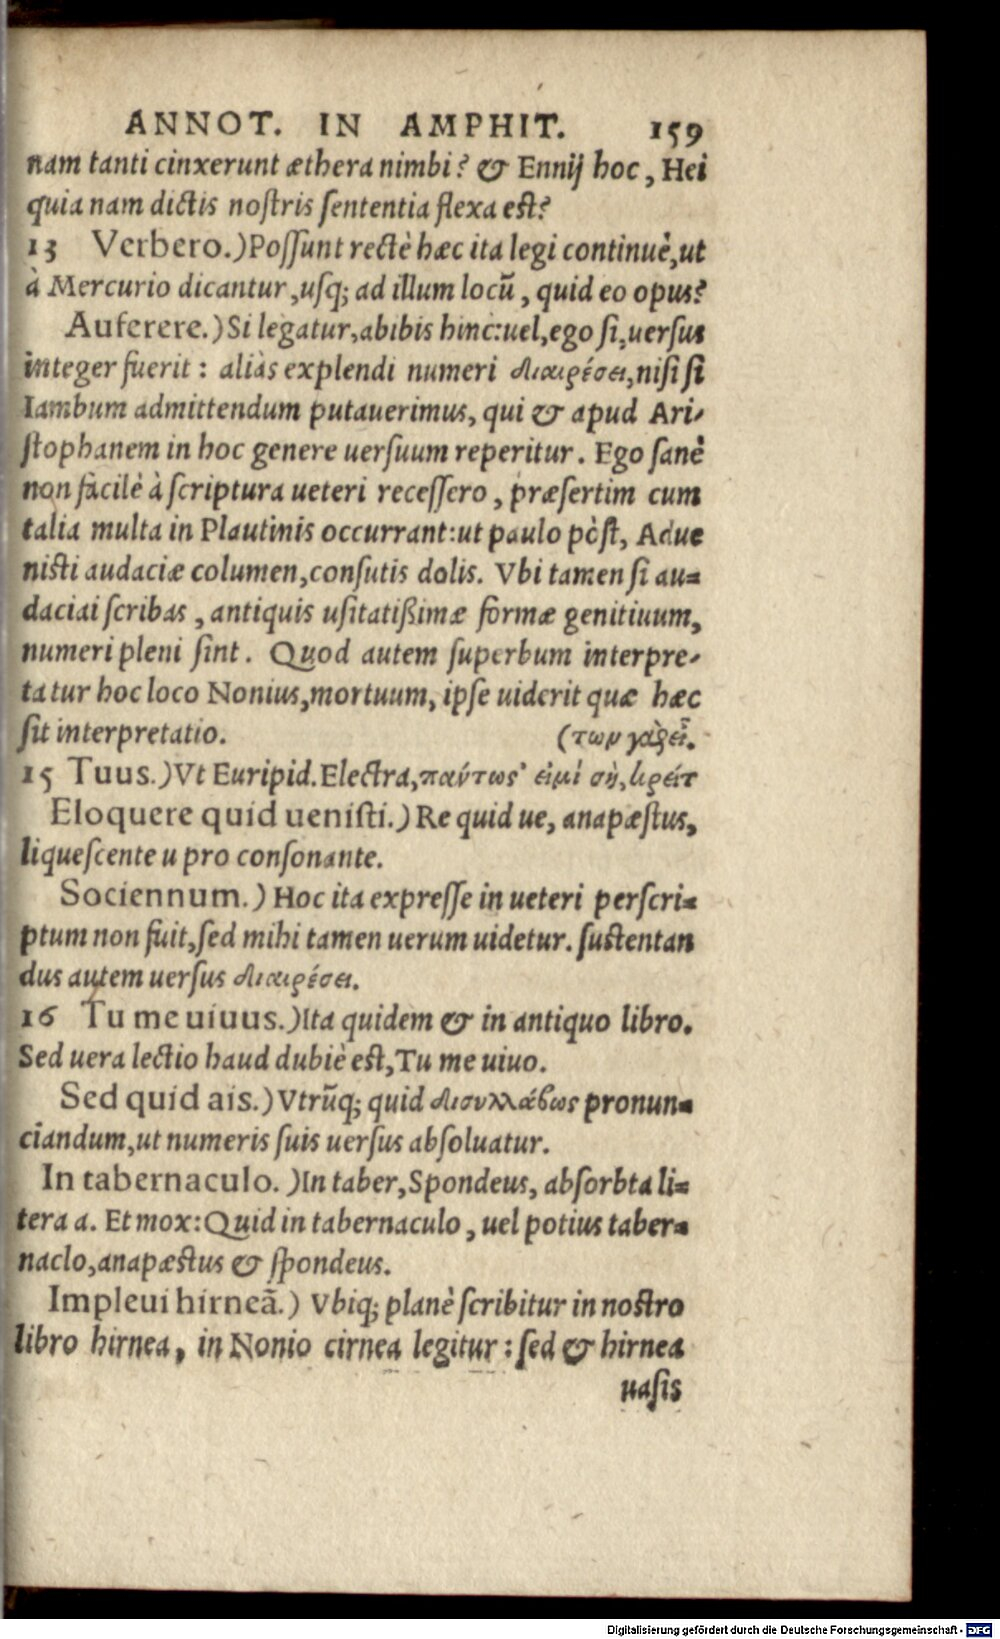 ANNOT. IN AMPHIT. 159
nam tanti cinxerunt æthera nimbi? & Ennij hoc, Hei
quia nam dictis nostris sententia flexa est?
13 Verbero.) Possunt rectè hæc ita legi continuè, ut
à Mercurio dicantur, usq; ad illum locũ, quid eo opus?
Auferere.) Si legatur, abibis hinc: uel, ego si, uersus
integer fuerit: aliàs explendi numeri διαιρέσει, nisi si
Iambum admittendum putauerimus, qui & apud Ari-
stophanem in hoc genere uersuum reperitur. Ego sanè
non facilè à scriptura ueteri recessero, præsertim cum
talia multa in Plautinis occurrant: ut paulo pòst, Adue
nisti audaciæ columen, consutis dolis. Vbi tamen si au=
daciai scribas, antiquis usitatißimæ formæ genitiuum,
numeri pleni sint. Quod autem superbum interpre-
tatur hoc loco Nonius, mortuum, ipse uiderit quæ hæc
sit interpretatio. (των γὰρ εἶ.
15 Tuus.) Vt Euripid. Electra, παύτως εἰμὶ σὴ, κρείτ
Eloquere quid uenisti.) Re quid ue, anapæstus,
liquescente u pro consonante.
Sociennum.) Hoc ita expresse in ueteri perscri=
ptum non fuit, sed mihi tamen uerum uidetur. sustentan
dus autem uersus διαιρέσει.
16 Tu me uiuus.) Ita quidem & in antiquo libro.
Sed uera lectio haud dubiè est, Tu me uiuo.
Sed quid ais.) Vtrũq; quid δισυλλάβως pronun=
ciandum, ut numeris suis uersus absoluatur.
In tabernaculo.) In taber, Spondeus, absorbta li=
tera a. Et mox: Quid in tabernaculo, uel potius taber=
naclo, anapæstus & spondeus.
Impleui hirneã.) Vbiq; planè scribitur in nostro
libro hirnea, in Nonio cirnea legitur: sed & hirnea
uasis
Digitalisierung gefördert durch die Deutsche Forschungsgemeinschaft - DFG